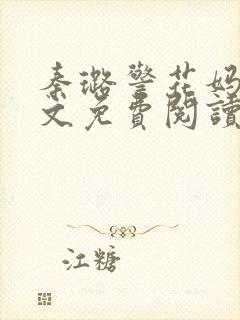 秦璐警花妈
文免費閱讀
江糖